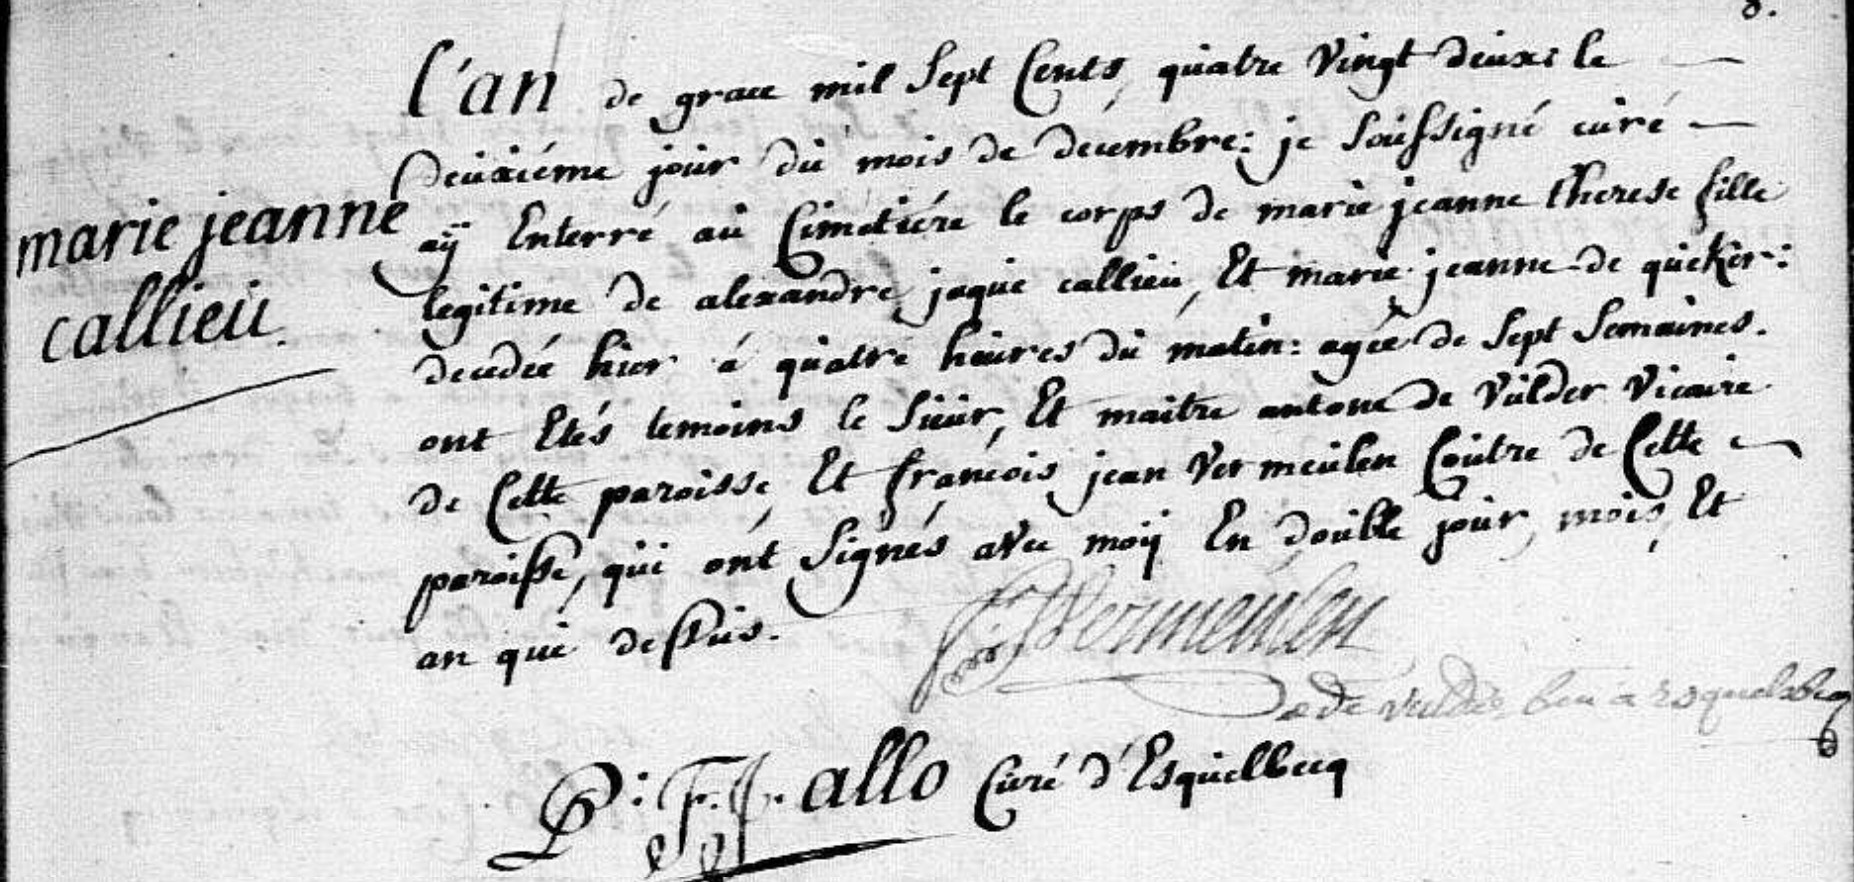 8.
L'an de grace mil Sept Cents, quatre Vingt deux: le
Deuxiéme jour du mois de decembre: je Soussigné curé
marie jeanne
callieu.
aÿ Enterré au Cimetiére le corps de marie jeanne therese fille
legitime de alexandre jaque callieu, Et marie jeanne de queker:
decedée hier á quatre heures du matin: agée de Sept Semaines.
ont Etés temoins le Sieur, Et maitre antone de Vulder Vicaire
de Cette paroisse, Et francois jean Vermeulen Coutre de Cette
paroisse, qui ont Signés avec moÿ En double jour, mois, Et
an que dessus.
f: j: Vermeulen
de Vulder à Esquelbecq
P: F. J. allo Curé d'Esquelbecq